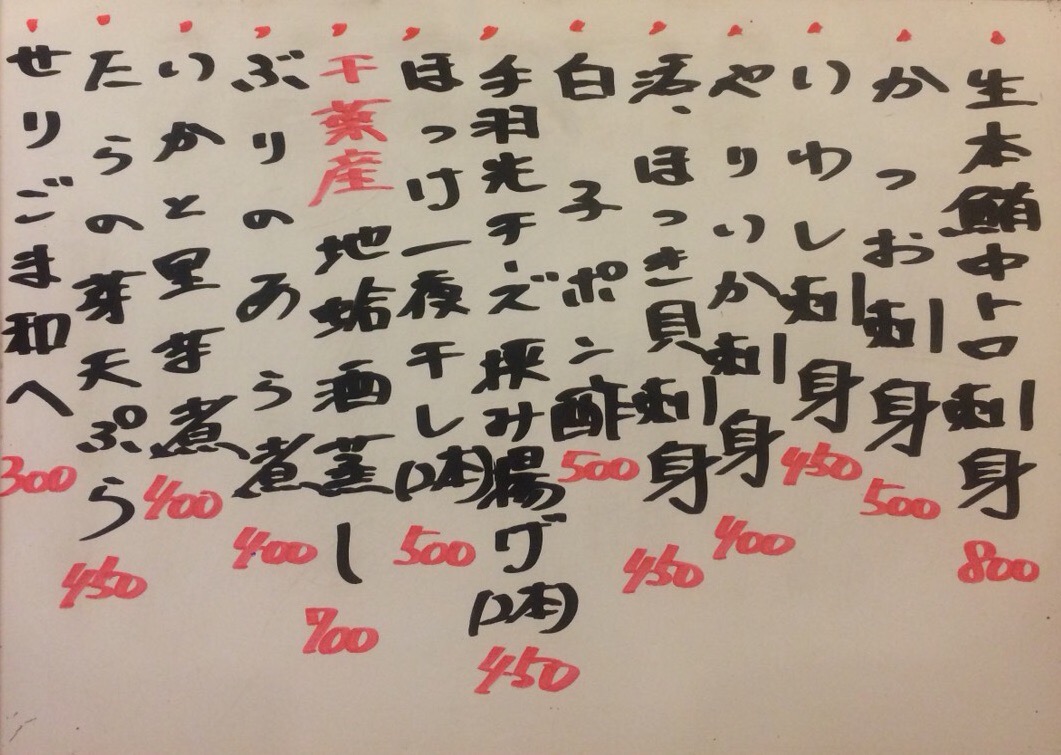 生本鮪中トロ刺身 800
かつお刺身 500
いわし刺身 450
やりいか刺身 400
活、ほっき貝刺身 450
白子ポン酢 500
手羽先チーズ挟み揚げ(2本) 450
ほっけ一夜干し(2本) 500
千葉産 地蛤酒蒸し 700
ぶりのあら煮 400
いかと里芋煮 400
たらの芽天ぷら 450
せりごま和へ 300